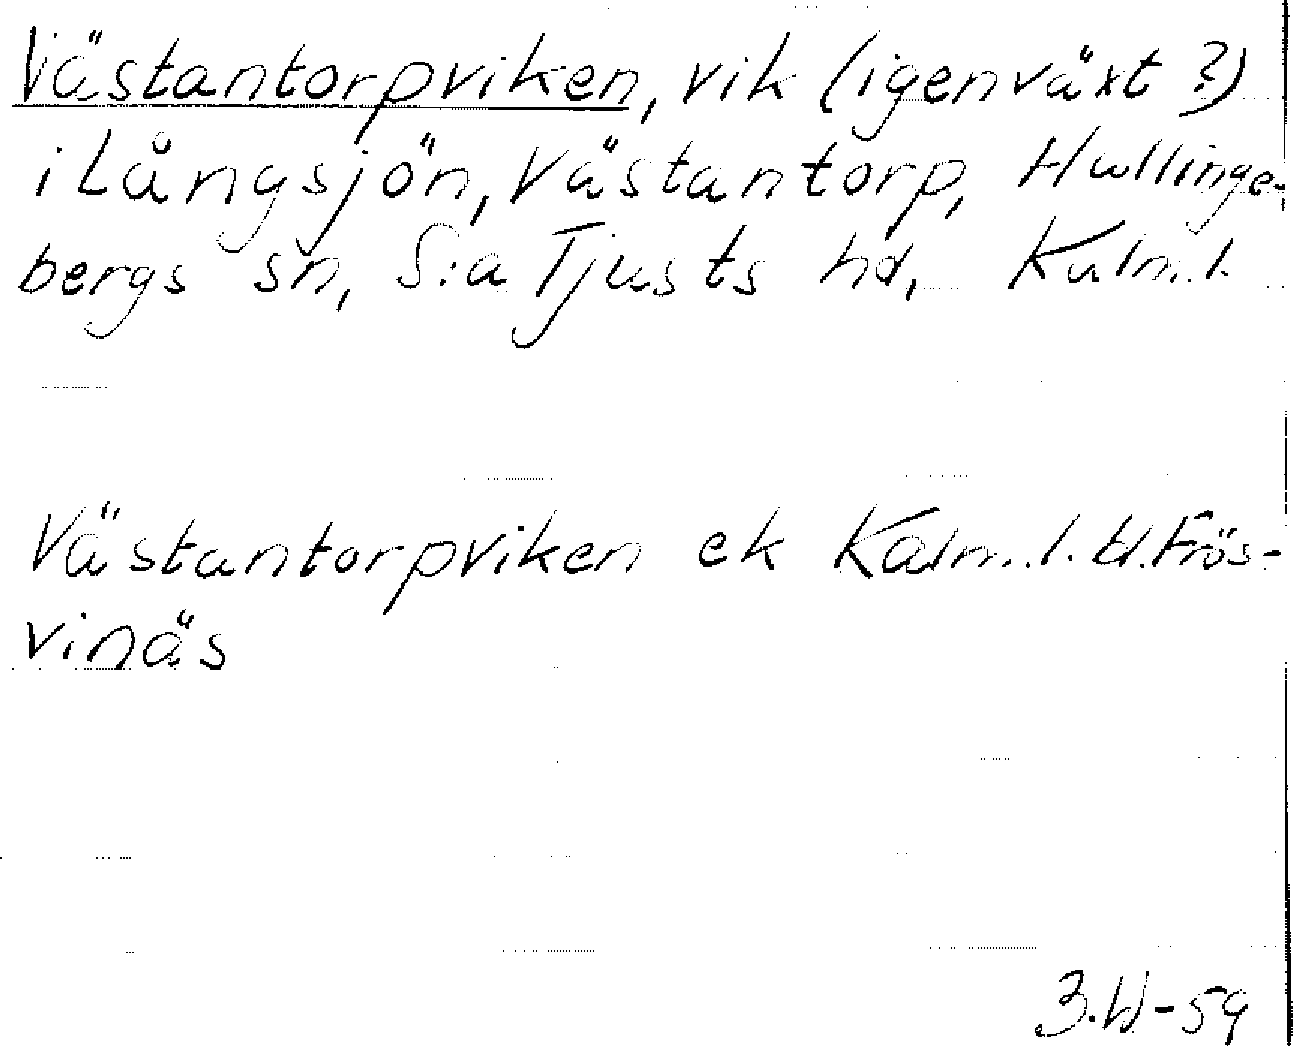 Västantorpviken, vik (igenväxt?)
i Långsjön, Västantorp, Hallinge-
bergs sn, S:a Tjusts hd, Kalm. l.
Västantorpviken ek Kalm. l. H. Frös-
vinäs
3.H-59